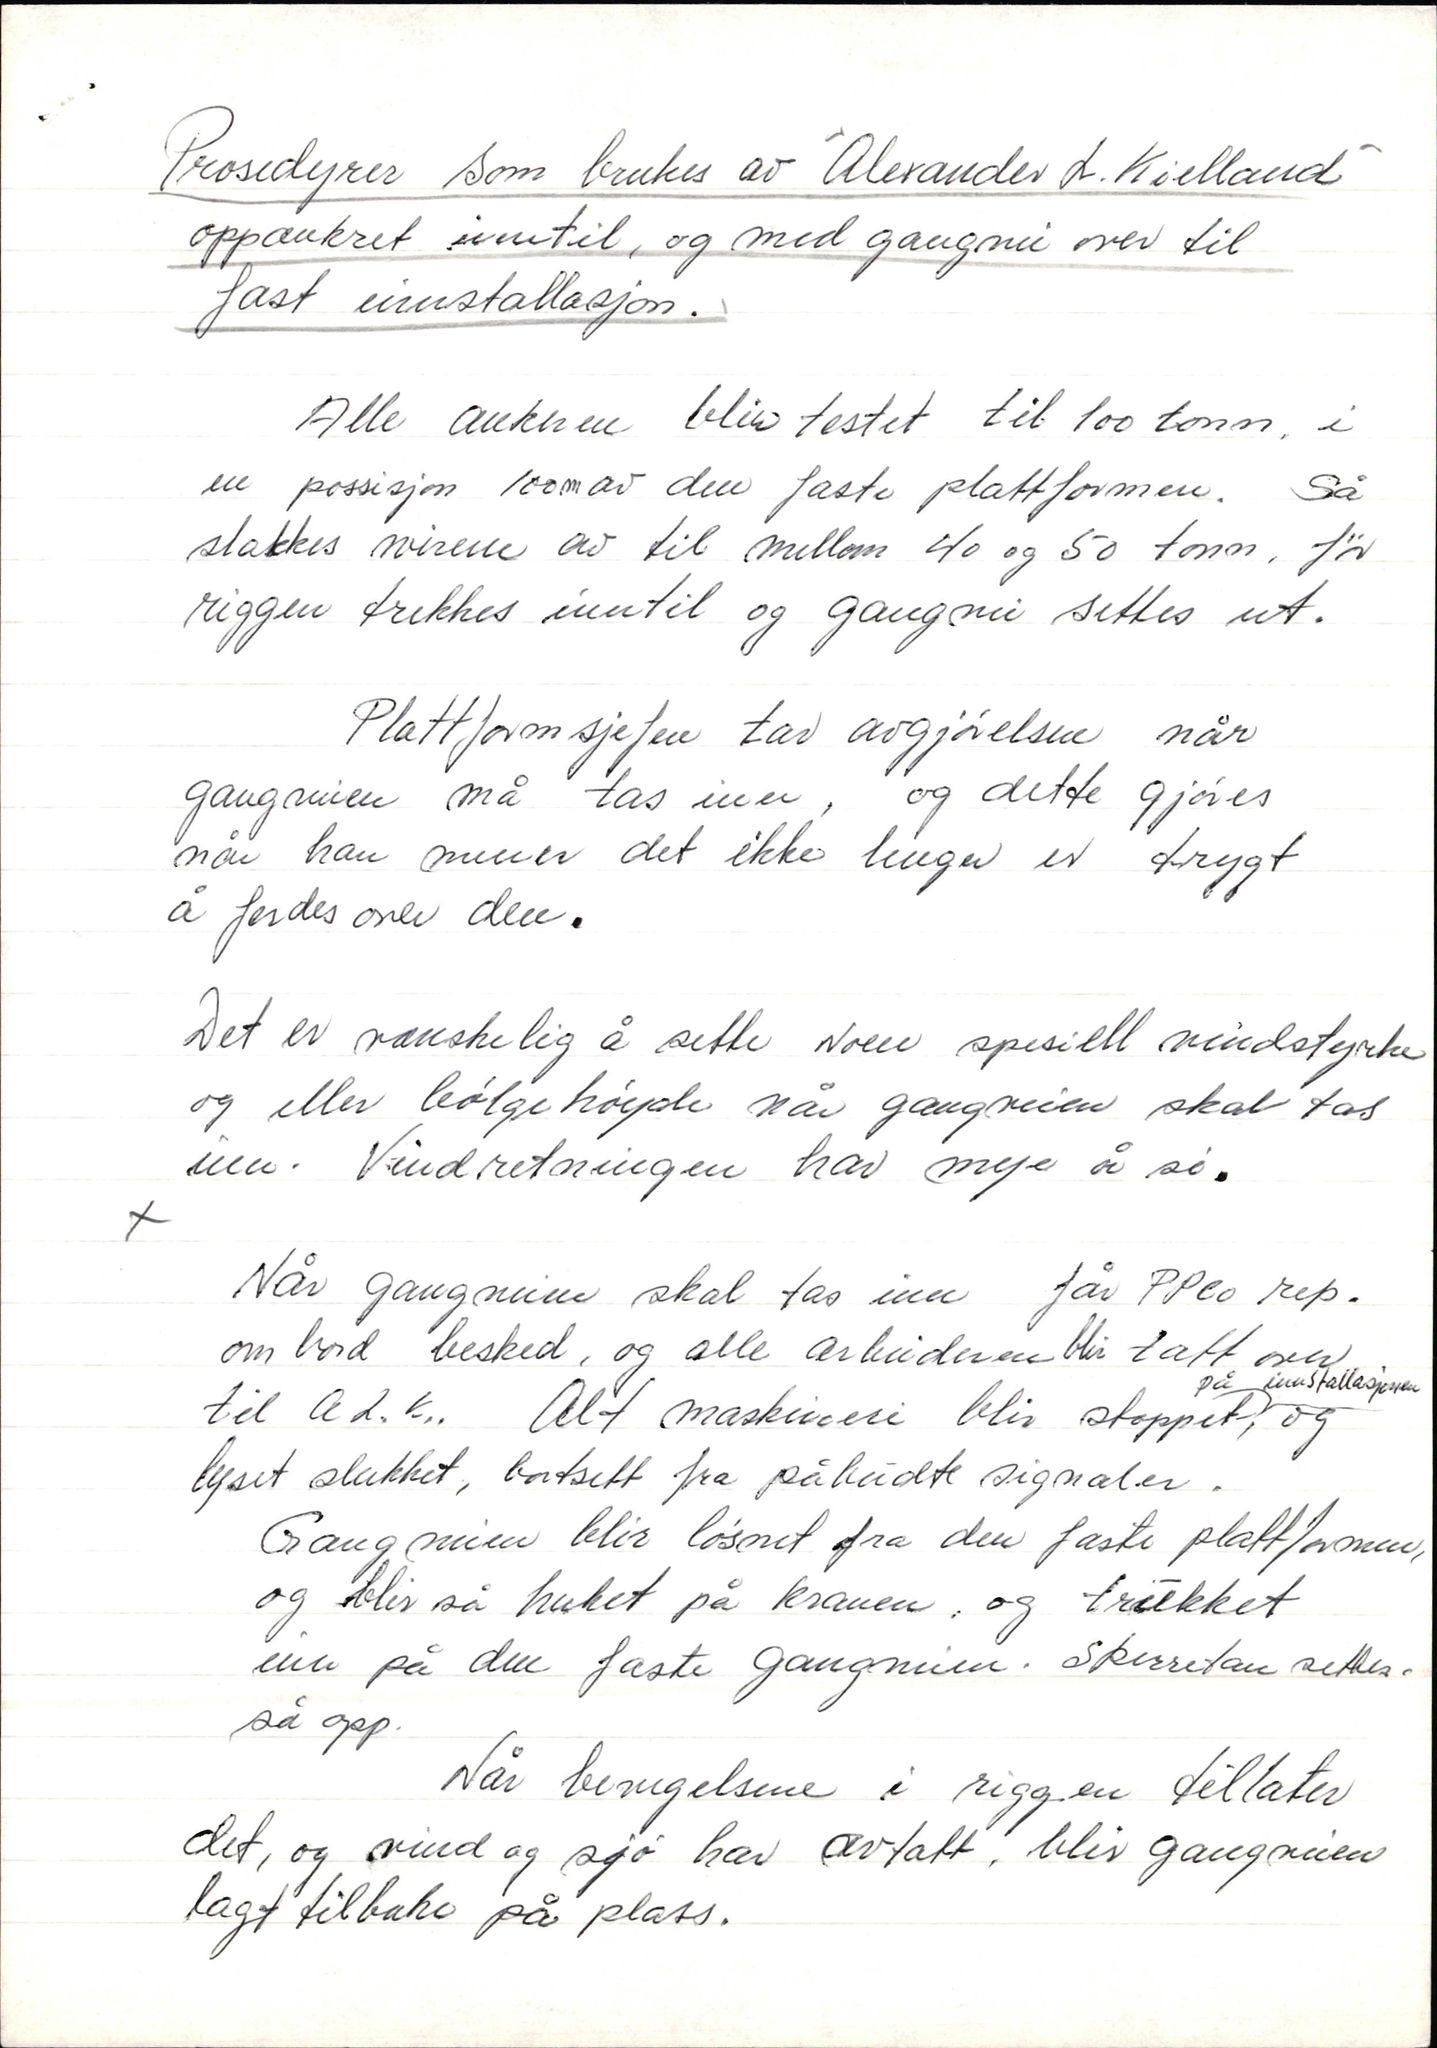 Prosedyrer som brukes av "Alexander L. Kielland"
oppankret inntil, og med gangvei over til
fast innstallasjon.
Alle ankrene blir testet til 100 tonn, i
en possisjon 100m av den faste plattformen. Så
slakkes wirene av til mellom 40 og 50 tonn, før
riggen trekkes inntil og gangvei settes ut.
Plattformsjefen tar avgjørelsen når
gangveien må tas inn, og dette gjøres
når han mener det ikke lenger er trygt
å ferdes over den.
Det er vanskelig å sette noen spesiell vindstyrke
og eller bølgehøyde når gangveien skal tas
inn. Vindretningen har meje å si.
x
Når gangveien skal tas inn får PPCo rep.
ombord besked, og alle arbeiderene blir tatt over
på innstallasjonen
til A.L.K.. Alt maskineri blir stoppet, og
lyset slukket, bortsett fra påbudte signaler.
Gangveien blir løsnet fra den faste plattformen,
og blir så huket på kranen, og trukket
inn på den faste gangveien. Sperretau settes
så opp.
Når bevegelsene i riggen tillater
det, og vind og sjø har avtatt, blir gangveien
lagt tilbake på plass.